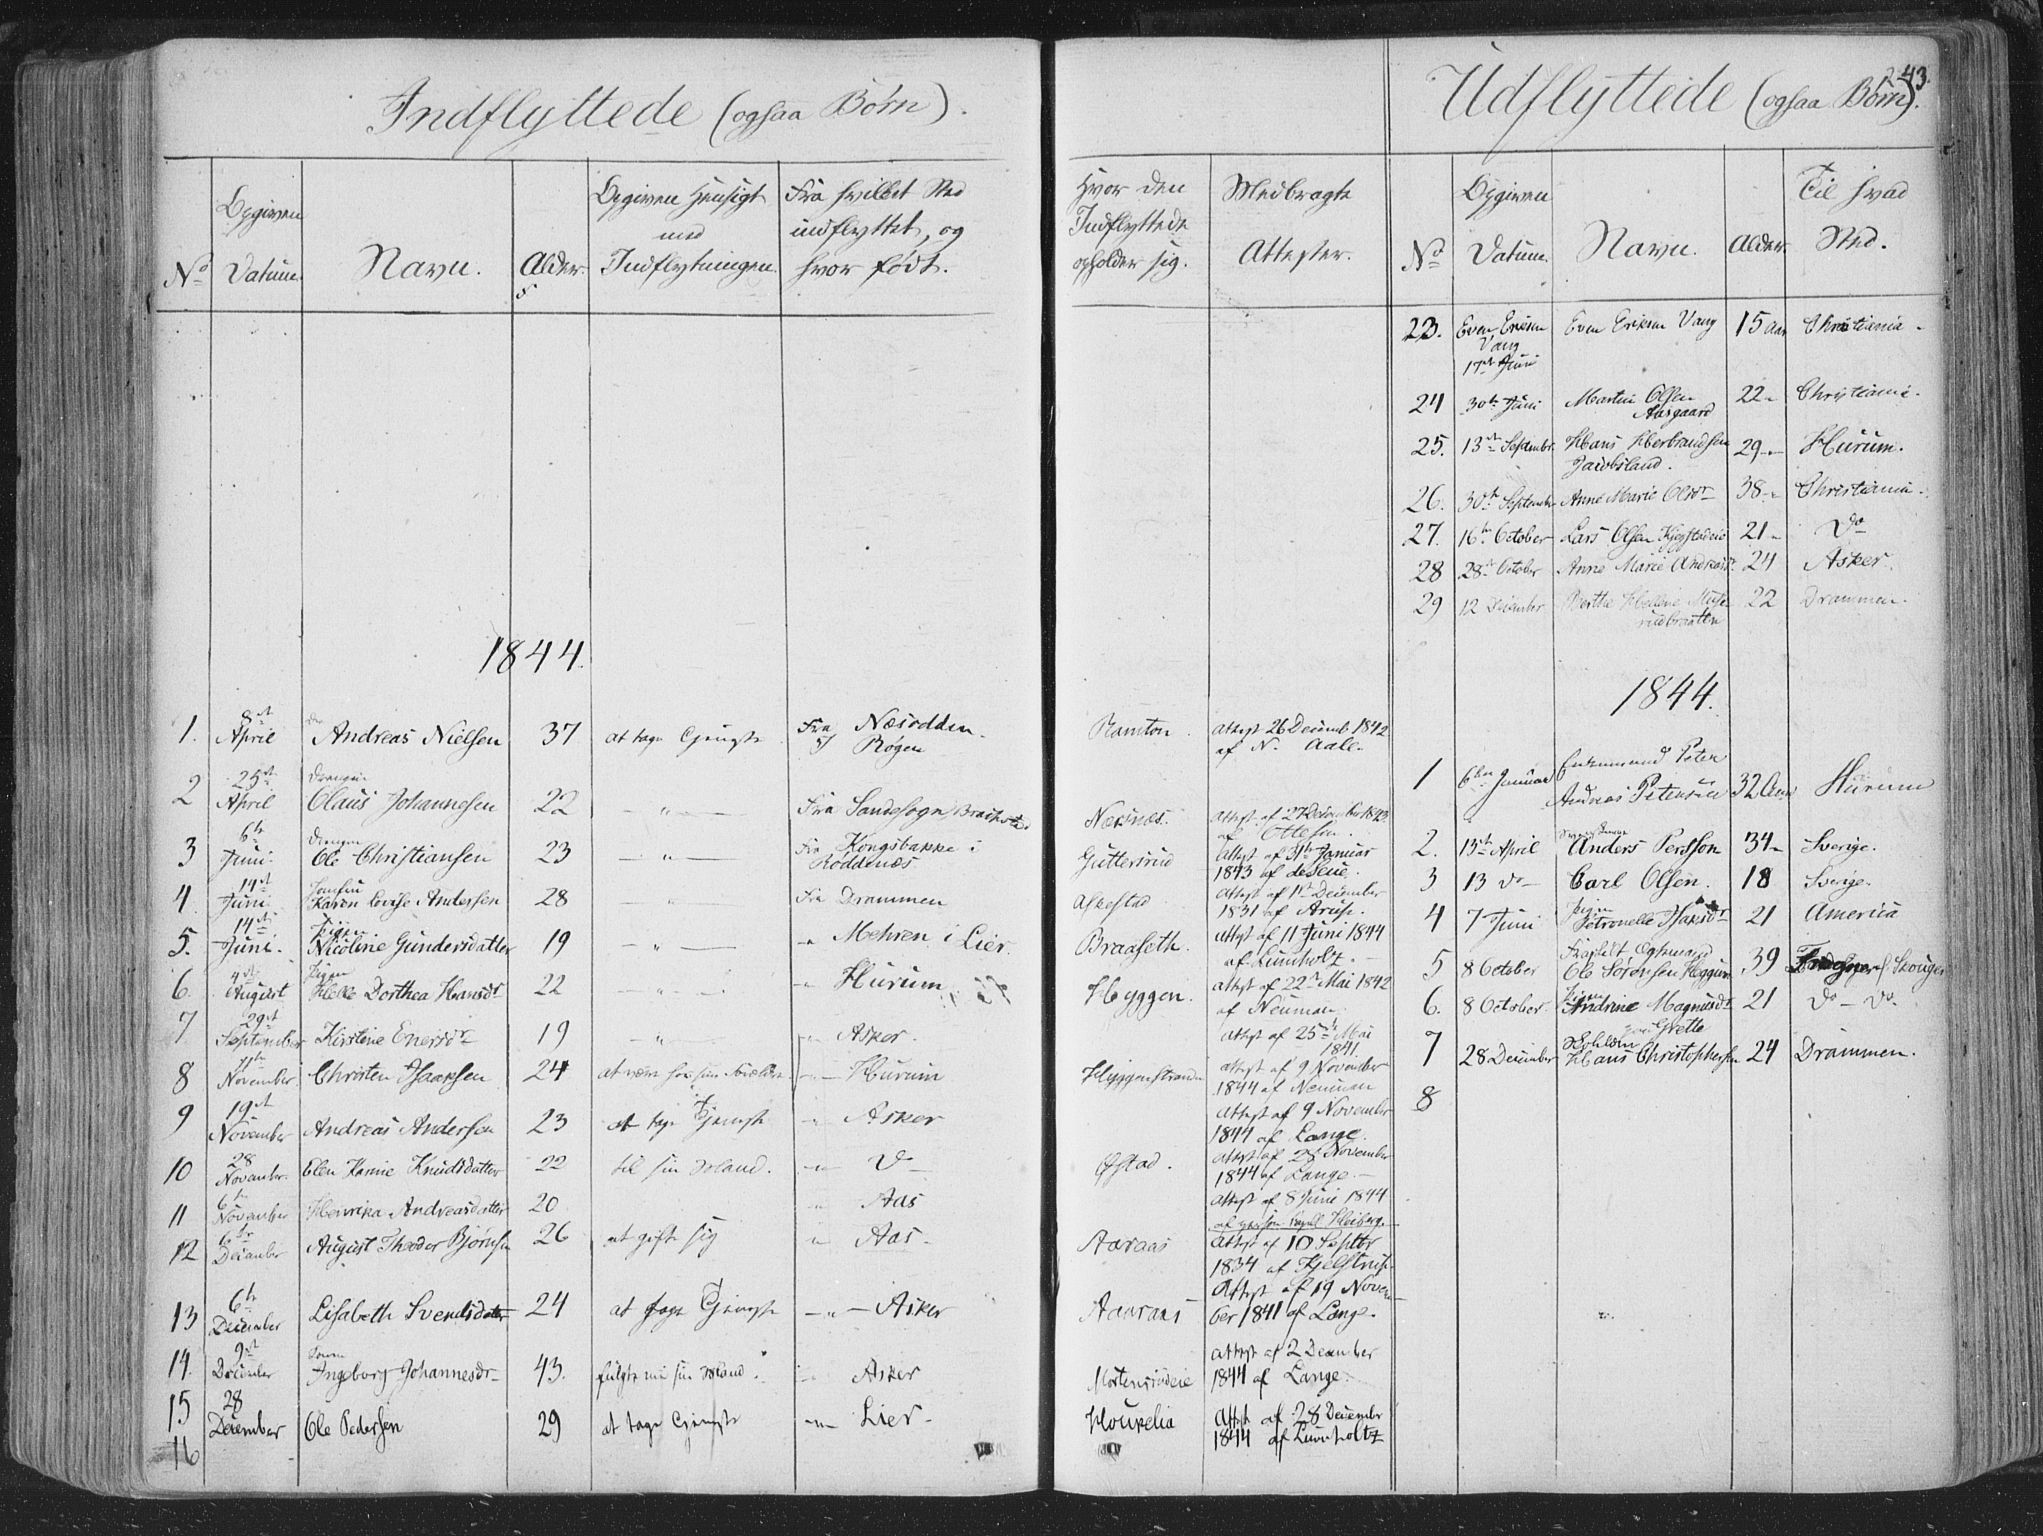 Indflyttede (ogsaa Børn).
No
Opgiven Datum.
Navn.
Alder.
Opgiven Hensigt med Indflytningen.
Fra hvilket Sted indflyttet, og hvor født.
Hvor den Indflyttede opholder sig.
Medbragte Attester.
1844.
1. 8de April Andreas Nielsen 37 at tage Tjeneste Fra Næsodden. Røgen Ramton. Attest 26 Decemb 1842 af N. Aall.
2 25de April Drengen Claus Johannesen 22 — " — Fra Sandesogn Nærsnæs. Attest af 27 December 1843 af Ottesen.
3 6te Juni Drengen Ole Christiansen 23 — " — Fra Kongsbakke i Røddenæs Guttersrud Attest af 31te Januar 1843 af deSeue.
4. 14de Juni Karen Lovise Andersen 28 — " — Fra Drammen Askestad Attest af 1ste December 1831 af Arup.
5. 14de Juni. Pigen Nicoline Gundersdatter 19 — " — " Mehren i Lier. Braaseth. Attest af 11 Juni 1844 af Lumholtz.
6. 4de August Pigen Dorthea Hansdr 22 — " — " Hurum Hyggen. Attest af 22de Mai 1842 af Neuman.
7 29de September Kirstine Enersdr 19 — " — Asker. Attest af 25de Mai 1841.
8 November. Christen Isaksen 24 at være hos sine Forældre — Hurum Hyggenstranden Attest af 9 November 1844 af Neuman
9 19de November Andreas Andersen 23 at tage Tjeneste — " Asker Attest af 9 November 1844 af Lange.
10 28 November. Elen Karine Knudsdatter 22 til sin Mand. — " — Do Øfstad. Attest af 28 November 1844 af Lange.
11 6te November Henrika Andreasdatter 20 " Aas Attest af 8 Juni 1844
12 6te December August Theodor Bjørnsen 26 at gifte sig " Aas. Aaraas Attest af 10 Septbr 1834 af Kjelstrup.
13 6te December Lisabeth Svendsdatter 24 at tage Tjeneste — " — Asker Aaraas Attest af 19 November 1841 af Lange.
14. 9de December Ingeborg Johannesdr 43. fulgte med sin Mand. — Asker Attest af 2 December 1844 af Lange.
15 28 December Ole Pedersen 29 at tage Tjeneste — " — Lier. Attest af 28 Decembr 1844 af Lumholtz
16
Udflyttede (ogsaa Børn).
243.
No
Opgiven Datum.
Navn.
Alder.
Til hvad Sted.
23. Even Eriksen Vang 17de Juni Even Eriksen Vang 15 Aar Christiania.
24 30te Juni Martin Olsen Aasgaard 22 " Christiania.
25. 13de Septembr. Hans Herbrandsen Jacobsland. 29 " Hurum.
26. 30te September Anne Marie Olsdr 38 " Christiania.
27. 16te October Lars Olsen 21 " Do
28 28de October Anne Marie Andreasdr 24 Asker.
29 12 December Berthe Hellene Muserudbraaten 22 Drammen.
1844.
1 6te Januar Peter Andreas Petersen 32 Aar Hurum
2. 13de April Anders Persson 34 " Sverige.
3 13 do Carl Olsen. 18 Sverige.
4 7 Juni Pigen Petronelle Isaksdr 21 America
5 8 October Ole Sørensen Heggum 39 Skouger
6. 8 October. Pigen Andrine Magnusdr 21 Do — Do.
7 28 December Hans Christophersen 24 Drammen.
8